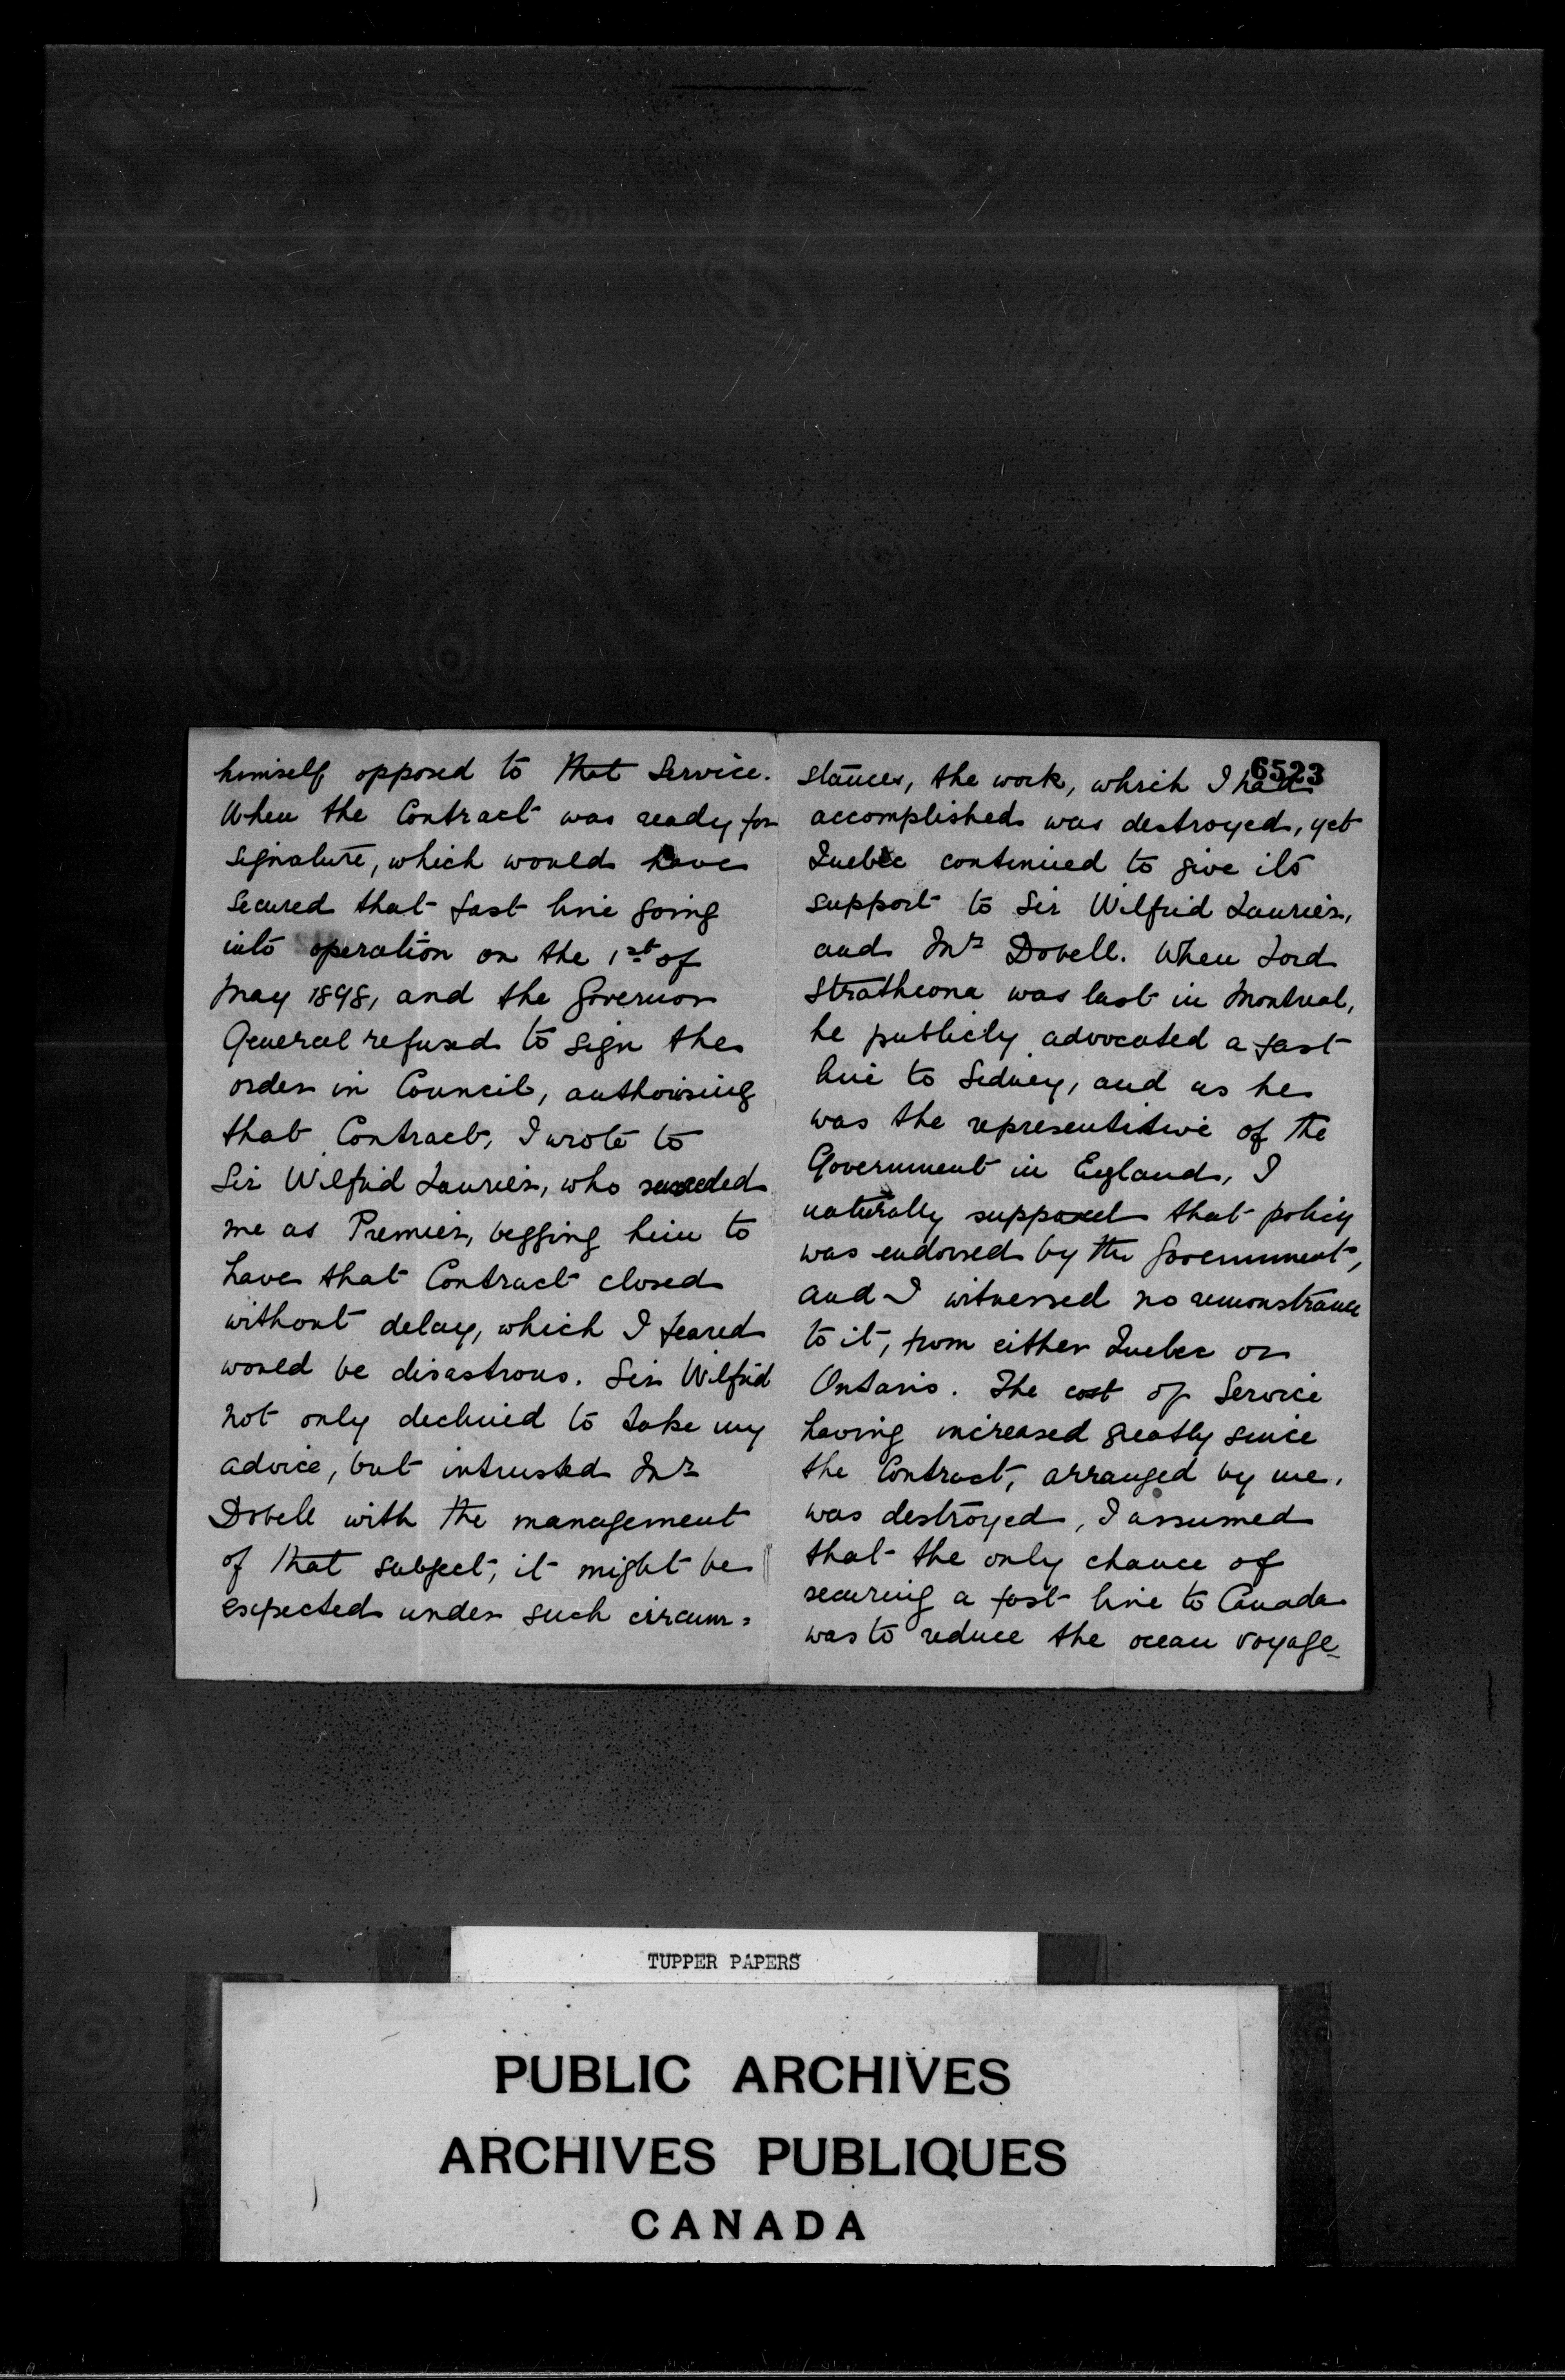 himself opposed to that Service.
When the Contract was ready for
signature, which would have
secured that fast line going
into operation on the 1st of
May 1898, and the Governor
General refused to sign the
order in Council, authorising
that Contract, I wrote to
Sir Wilfrid Laurier, who succeeded
me as Premier, begging him to
have that Contract closed
without delay, which I feared
would be disastrous. Sir Wilfrid
not only declined to take my
advice, but intrusted Mr
Dobell with the management
of that subject; it might be
expected under such circum=
6523
stances, the work, which I had
accomplished was destroyed, yet
Quebec continued to give its
support to Sir Wilfrid Laurier,
and Mr Dobell. When Lord
Strathcona was last in Montreal,
he publicly advocated a fast
line to Sidney, and as he
was the representitive of the
Government in England, I
naturally supposed that policy
was endorsed by the Government,
and I witnessed no remonstrance
to it, from either Quebec or
Ontario. The cost of Service
having increased greatly since
the Contract, arranged by me,
was destroyed, I assumed
that the only chance of
securing a fast line to Canada
was to reduce the ocean voyage
TUPPER PAPERS
PUBLIC ARCHIVES
ARCHIVES PUBLIQUES
CANADA